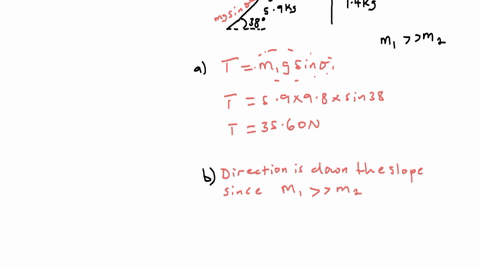 mgsinθ
5.9Kg
38°
1.4Kg
m₁ >> m₂
a) T = m₁gsinθ₁
T = 5.9x9.8xsin38
T = 35.60N
b) Direction is down the slope
since m₁ >> m₂